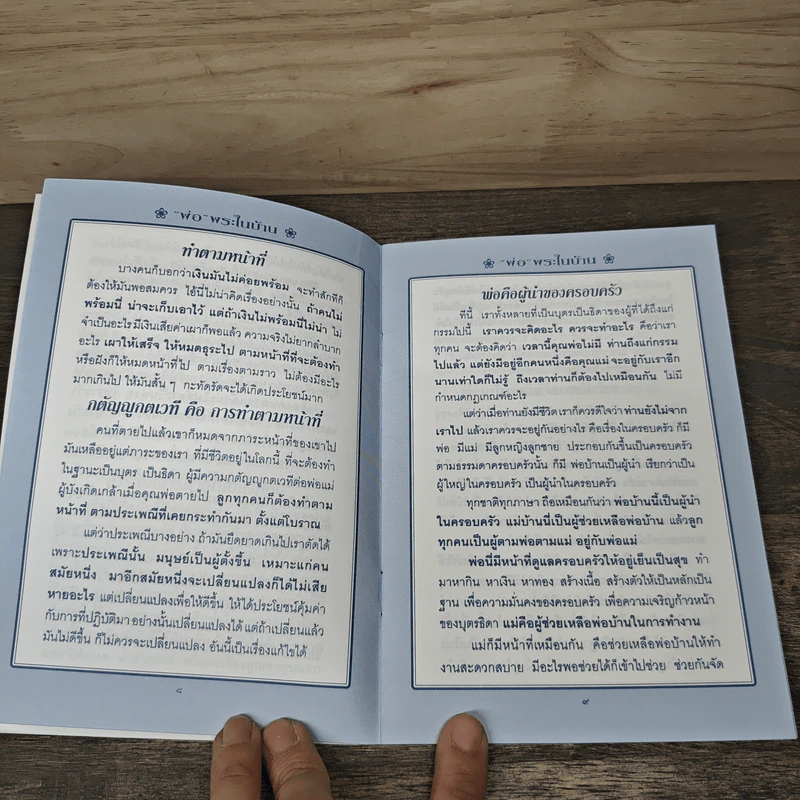 "พ่อ" พระในบ้าน
ทำตามหน้าที่
บางคนก็บอกว่าเงินมันไม่ค่อยพร้อม จะทำสักทีก็
ต้องให้มันพอสมควร ไอ้นี่ไม่น่าคิดเรื่องอย่างนั้น ถ้าคนไม่
พร้อมนี่ น่าจะเก็บเอาไว้ แต่ถ้าเงินไม่พร้อมนี่ไม่น่า ไม่
จำเป็นอะไร มีเงินเสียค่าเผาก็พอแล้ว ความจริงไม่ยากลำบาก
อะไร เผาให้เสร็จ ให้หมดธุระไป ตามหน้าที่ที่จะต้องทำ
หรือฝังก็ให้หมดหน้าที่ไป ตามเรื่องตามราว ไม่ต้องมีอะไร
มากเกินไป ให้มันสั้น ๆ กะทัดรัดจะได้เกิดประโยชน์มาก
กตัญญูกตเวที คือ การทำตามหน้าที่
คนที่ตายไปแล้วเขาก็หมดจากภาระหน้าที่ของเขาไป
มันเหลืออยู่แต่ภาระของเรา ที่มีชีวิตอยู่ในโลกนี้ ที่จะต้องทำ
ในฐานะเป็นบุตร เป็นธิดา ผู้มีความกตัญญูกตเวทีต่อพ่อแม่
ผู้บังเกิดเกล้าเมื่อคุณพ่อตายไป ลูกทุกคนก็ต้องทำตาม
หน้าที่ ตามประเพณีที่เคยกระทำกันมา ตั้งแต่โบราณ
แต่ว่าประเพณีบางอย่าง ถ้ามันยืดยาดเกินไปเราตัดได้
เพราะประเพณีนั้น มนุษย์เป็นผู้ตั้งขึ้น เหมาะแก่คน
สมัยหนึ่ง มาอีกสมัยหนึ่งจะเปลี่ยนแปลงก็ได้ไม่เสีย
หายอะไร แต่เปลี่ยนแปลงเพื่อให้ดีขึ้น ให้ได้ประโยชน์คุ้มค่า
กับการที่ปฏิบัติมา อย่างนั้นเปลี่ยนแปลงได้ แต่ถ้าเปลี่ยนแล้ว
มันไม่ดีขึ้น ก็ไม่ควรจะเปลี่ยนแปลง อันนี้เป็นเรื่องแก้ไขได้
๘
"พ่อ" พระในบ้าน
พ่อคือผู้นำของครอบครัว
ทีนี้ เราทั้งหลายที่เป็นบุตรเป็นธิดาของผู้ที่ได้ถึงแก่
กรรมไปนี้ เราควรจะคิดอะไร ควรจะทำอะไร คือว่าเรา
ทุกคน จะต้องคิดว่า เวลานี้คุณพ่อไม่มี ท่านถึงแก่กรรม
ไปแล้ว แต่ยังมีอยู่อีกคนหนึ่งคือคุณแม่ จะอยู่กับเราอีก
นานเท่าใดก็ไม่รู้ ถึงเวลาท่านก็ต้องไปเหมือนกัน ไม่มี
กำหนดกฎเกณฑ์อะไร
แต่ว่าเมื่อท่านยังมีชีวิต เราก็ควรดีใจว่า ท่านยังไม่จาก
เราไป แล้วเราควรจะอยู่กันอย่างไร คือเรื่องในครอบครัว ก็มี
พ่อ มีแม่ มีลูกหญิงลูกชาย ประกอบกันขึ้นเป็นครอบครัว
ตามธรรมดาครอบครัวนั้น ก็มี พ่อบ้านเป็นผู้นำ เรียกว่าเป็น
ผู้ใหญ่ในครอบครัว เป็นผู้นำในครอบครัว
ทุกชาติทุกภาษา ถือเหมือนกันว่า พ่อบ้านนี้เป็นผู้นำ
ในครอบครัว แม่บ้านนี้เป็นผู้ช่วยเหลือพ่อบ้าน แล้วลูก
ทุกคนเป็นผู้ตามพ่อตามแม่ อยู่กับพ่อแม่
พ่อนี่มีหน้าที่ดูแลครอบครัวให้อยู่เย็นเป็นสุข ทำ
มาหากิน หาเงิน หาทอง สร้างเนื้อ สร้างตัวให้เป็นหลักเป็น
ฐาน เพื่อความมั่นคงของครอบครัว เพื่อความเจริญก้าวหน้า
ของบุตรธิดา แม่คือผู้ช่วยเหลือพ่อบ้านในการทำงาน
แม่ก็มีหน้าที่เหมือนกัน คือช่วยเหลือพ่อบ้านให้ทำ
งานสะดวกสบาย มีอะไรพอช่วยได้ก็เข้าไปช่วย ช่วยกันจัด
๙